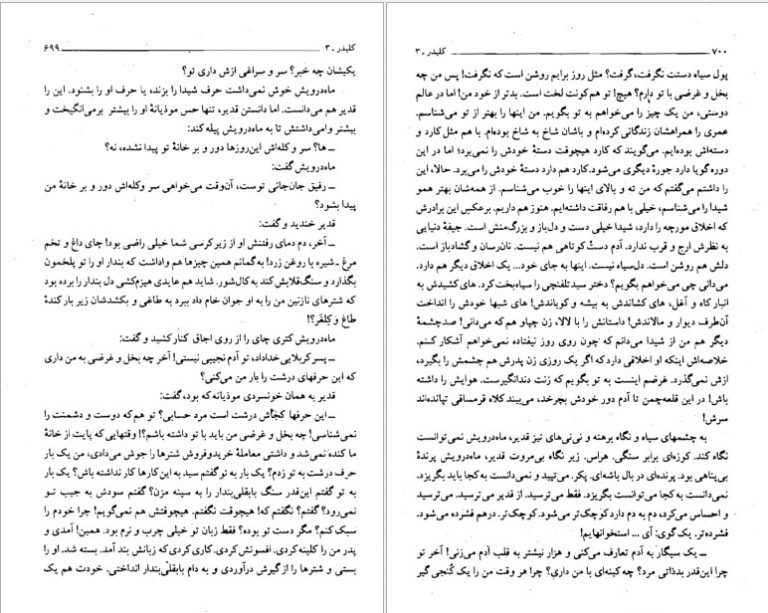 کلیدر ـ ۳ ۶۹۹
یکیشان چه خبر؟ سر و سراغی ازش داری تو؟
ماه‌درویش خوش نمی‌داشت حرف شیدا را بزند، یا حرف او را بشنود. این را
قدیر هم می‌دانست. اما دانستن قدیر، تنها حس موذیانهٔ او را بیشتر برمی‌انگیخت و
بیشتر وامی‌داشتش تا به ماه‌درویش پیله کند:
ـ ها؟ سر و کله‌اش این‌روزها دور و بر خانهٔ تو پیدا نشده، نه؟
ماه‌درویش گفت:
ـ رفیق جان‌جانی توست، آن‌وقت می‌خواهی سر وکله‌اش دور و بر خانهٔ من
پیدا بشود؟
قدیر خندید و گفت:
ـ آخر، دم دمای رفتنش او از زیر کرسی شما خیلی راضی بود! چای داغ و تخم
مرغ ـ شیره یا روغن زرد! به گمانم همین چیزها هم واداشت که بندار او را تو پلخمون
بگذارد و سنگ‌قلابش کند به کال‌شور. شاید هم عایدی هیزم‌کشی دل بندار را برده بود
که شترهای نازنین من را به او جوان خام داد ببرد به طاغی و بکشدشان زیر بار کندهٔ
طاغ و کِلغَر؟!
ماه‌درویش کتری چای را از روی اجاق کنار کشید و گفت:
ـ پسر کربلایی‌خداداد، تو آدم نجیبی نیستی! آخر چه بخل و غرضی به من داری
که این حرفهای درشت را بار من می‌کنی؟
قدیر به همان خونسردی موذیانه که بود، گفت:
ـ این حرفها کجاش درشت است مرد حسابی؟ تو هم که دوست و دشمنت را
نمی‌شناسی! چه بخل و غرضی من باید با تو داشته باشم؟! وقتهایی که پایت از خانهٔ
ما کنده نمی‌شد و داشتی معاملهٔ خریدوفروش شترها را جوش می‌دادی، من یک بار
حرف درشت به تو زدم؟ یک بار به تو گفتم سید به این کارها کار نداشته باش؟ یک بار
به تو گفتم این‌قدر سنگ بابقلی‌بندار را به سینه مزن؟ گفتم سودش به جیب تو
نمی‌رود؟ گفتم؟ نگفتم که! هیچوقت نگفتم، هیچوقتش هم نمی‌گویم! چرا خودم را
سبک کنم؟ مگر دست تو بوده؟ فقط زبان تو خیلی چرب و نرم بود. همین! آمدی و
پدر من را کلینه کردی. افسونش کردی. کاری کردی که زبانش بند آمد. بسته شد. او را
بستی و شترها را از گیرش درآوردی و به دام بابقلی‌بندار انداختی. خودت هم یک
۷۰۰ کلیدر ـ ۳
پول سیاه دستت نگرفت، گرفت؟ مثل روز برایم روشن است که نگرفت! پس من چه
بخل و غرضی با تو دارم؟ هیچ! تو هم کونت لخت است. بدتر از خود من! اما در عالم
دوستی، من یک چیز را می‌خواهم به تو بگویم. من اینها را بهتر از تو می‌شناسم.
عمری را همراهشان زندگانی کرده‌ام و باشان شاخ به شاخ بوده‌ام. با هم مثل کارد و
دسته‌اش بوده‌ایم. می‌گویند که کارد هیچوقت دستهٔ خودش را نمی‌برد؛ اما در این
دوره گویا دارد جورهٔ دیگری می‌شود. کارد هم دارد دستهٔ خودش را می‌برد. حالا، این
را داشتم می‌گفتم که من ته و بالای اینها را خوب می‌شناسم. از همه‌شان بهتر همو
شیدا را می‌شناسم، خیلی با هم رفاقت داشته‌ایم. هنوز هم داریم. برعکس این برادرش
که اخلاق مورچه را دارد، شیدا خیلی دست و دل‌باز و بزرگ‌منش است. جیفهٔ دنیایی
به نظرش ارج و قرب ندارد. آدم دست کوتاهی هم نیست. نان‌رسان و گشادباز است.
دلش هم روشن است. دل‌سیاه نیست. اینها به جای خود... یک اخلاق دیگر هم دارد.
می‌دانی چی می‌خواهم بگویم؟ دختر سید تلفنچی را سیاه‌بخت کرد. های کشیدش به
انبار کاه و آغل، های کشاندش به بیشه و کوپاندش! های شبها خودش را انداخت
آن‌طرف دیوار و مالاندش! داستانش را با لالا، زن چپاو هم که می‌دانی! صدچشمهٔ
دیگر هم من از شیدا می‌دانم که چون روی روز نیفتاده نمی‌خواهم آشکار کنم.
خلاصه‌اش اینکه او اخلاقی دارد که اگر یک روزی زن پدرش هم چشمش را بگیرد،
ازش نمی‌گذرد. غرضم اینست به تو بگویم که زنت دندانگیرست. هوایش را داشته
باش! در این قلعه‌چمن تا آدم دور خودش بچرخد، می‌بیند کلاه قرمساقی تپانده‌اند
سرش!
به چشمهای سیاه و نگاه برهنه و نی‌نی‌های تیز قدیر، ماه‌درویش نمی‌توانست
نگاه کند. کوزه‌ای برابر سنگی. هراس. زیر نگاه بی‌مروت قدیر، ماه‌درویش پرندهٔ
بی‌پناهی بود. پرنده‌ای در بال باشه‌ای. پکر. می‌تپید و نمی‌دانست به کجا باید بگریزد.
نمی‌دانست به کجا می‌توانست بگریزد. فقط می‌ترسید. از قدیر می‌ترسید. می‌ترسید
و احساس می‌کرد، دم به دم دارد کوچک‌تر می‌شود. کوچک‌تر. درهم فشرده می‌شود.
فشرده‌تر. یک گوی: آی ... استخوانهایم!
ـ یک سیگار به آدم تعارف می‌کنی و هزار نیشتر به قلب آدم می‌زنی! آخر تو
چرا این‌قدر بدذاتی مرد؟ چه کینه‌ای با من داری؟ چرا هر وقت من را یک کُنجی گیر